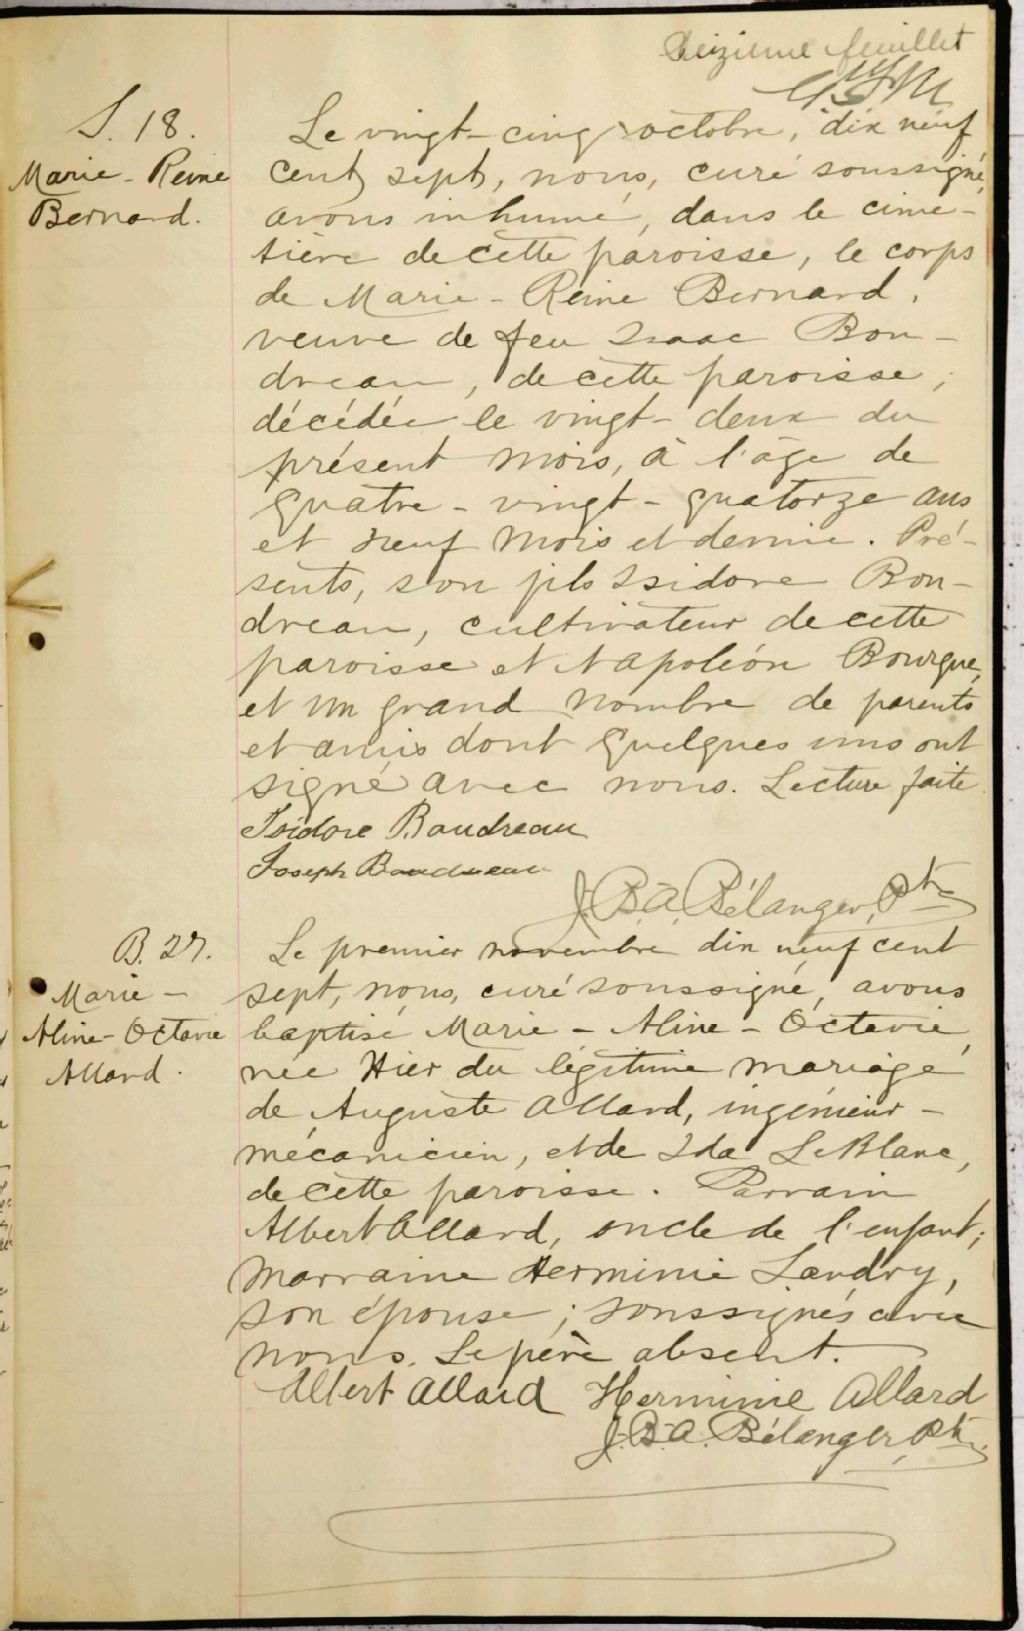 Seizième feuillet
S. 18.
Marie-Reine
Bernard.
Le vingt-cinq octobre, dix neuf
cent sept, nous, curé soussigné,
avons inhumé, dans le cime-
tière de cette paroisse, le corps
de Marie-Reine Bernard,
veuve de feu Isaac Bou-
dreau, de cette paroisse,
décédée le vingt-deux du
présent mois, à l'âge de
quatre-vingt-quatorze ans
et neuf mois et demie. Pré-
sents, son fils Isidore Bou-
dreau, cultivateur de cette
paroisse et Napoléon Bourque,
et un grand nombre de parents
et amis dont quelques uns ont
signé avec nous. Lecture faite.
Isidore Boudreau
Joseph Boudreau
J. B. A. Bélanger, Ptre
B. 27.
Marie-
Aline-Octavie
Allard.
Le premier novembre dix neuf cent
sept, nous, curé soussigné, avons
baptisé Marie-Aline-Octavie,
née Hier du légitime mariage
de Auguste Allard, ingénieur-
mécanicien, et de Ida LeBlanc,
de cette paroisse. Parrain
Albert Allard, oncle de l'enfant;
Marraine Herminie Landry,
son épouse; soussignés avec
nous. Le père absent.
Albert Allard Herminie Allard
J. B. A. Bélanger, Ptre